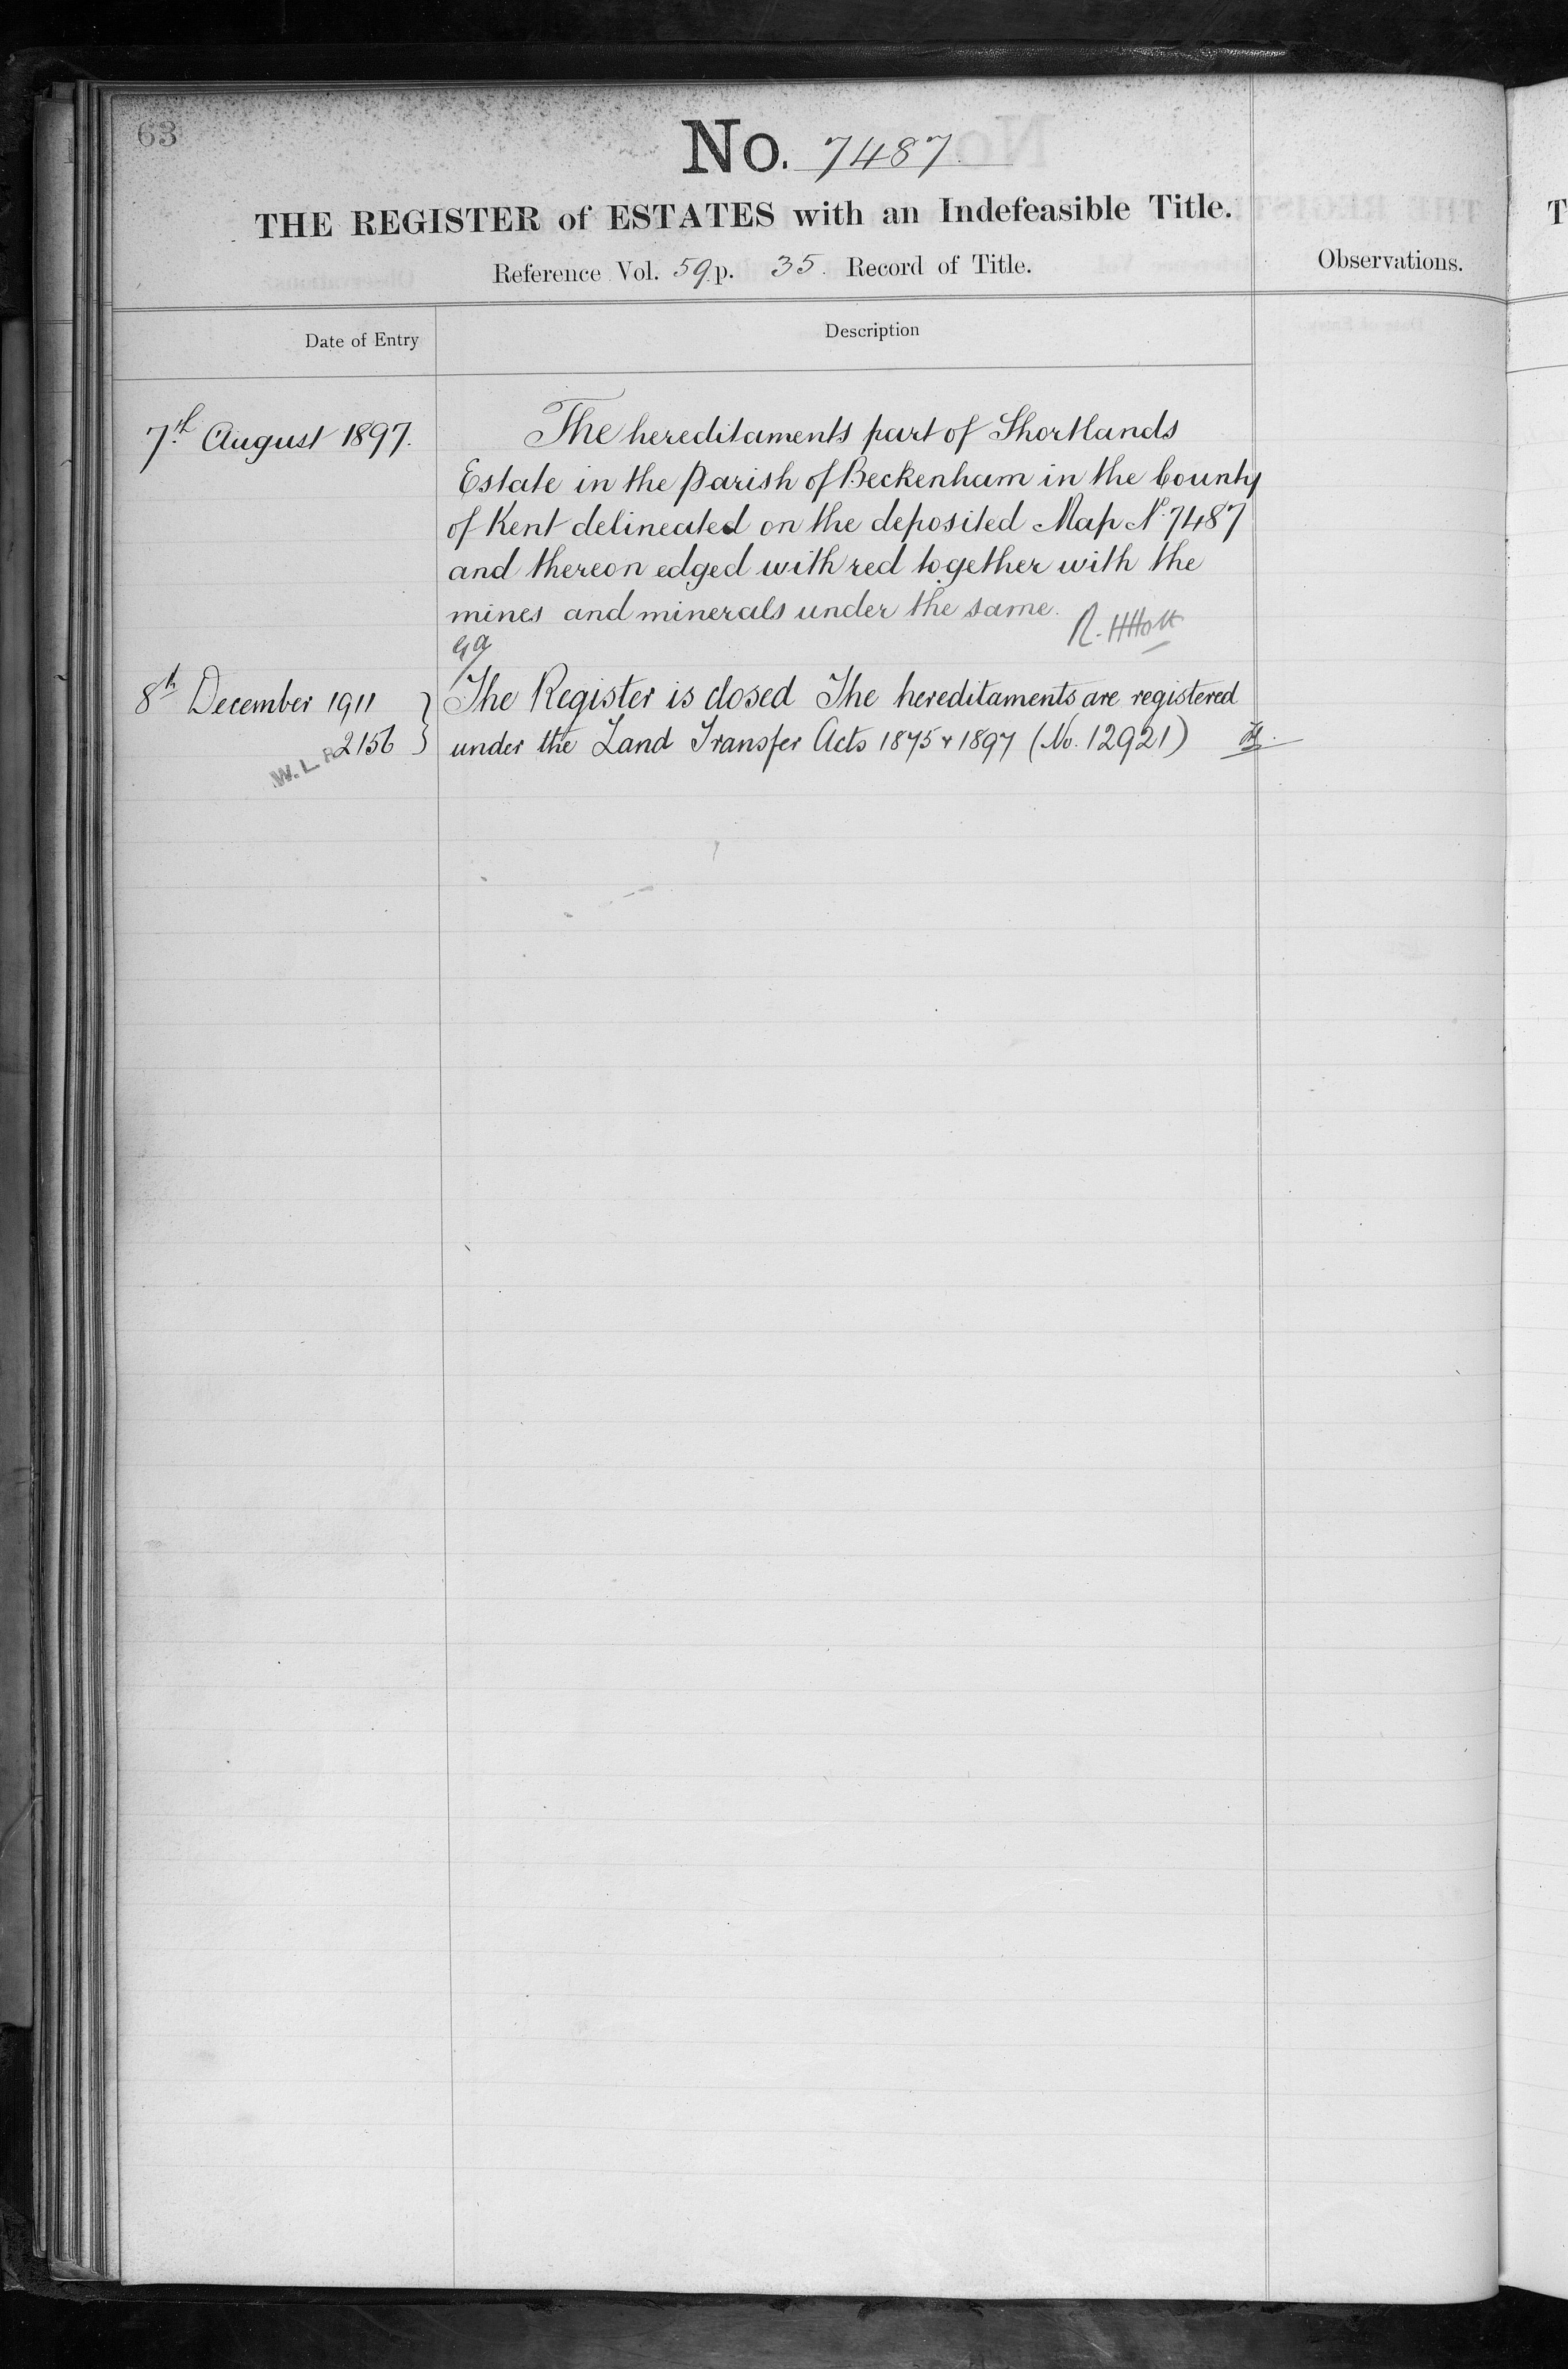 63
No. 7487
THE REGISTER of ESTATES with an Indefeasible Title.
Reference Vol. 59 p. 35. Record of Title.
Observations.
Date of Entry
Description
7th August 1897.
The hereditaments part of Shortlands
Estate in the Parish of Beckenham in the County
of Kent delineated on the deposited Map No. 7487
and thereon edged with red together with the
mines and minerals under the same.
R. H Holt
8th December 1911
2156
W. L. R.
The Register is closed The hereditaments are registered
under the Land Transfer Acts 1875 & 1897 (No. 12921)